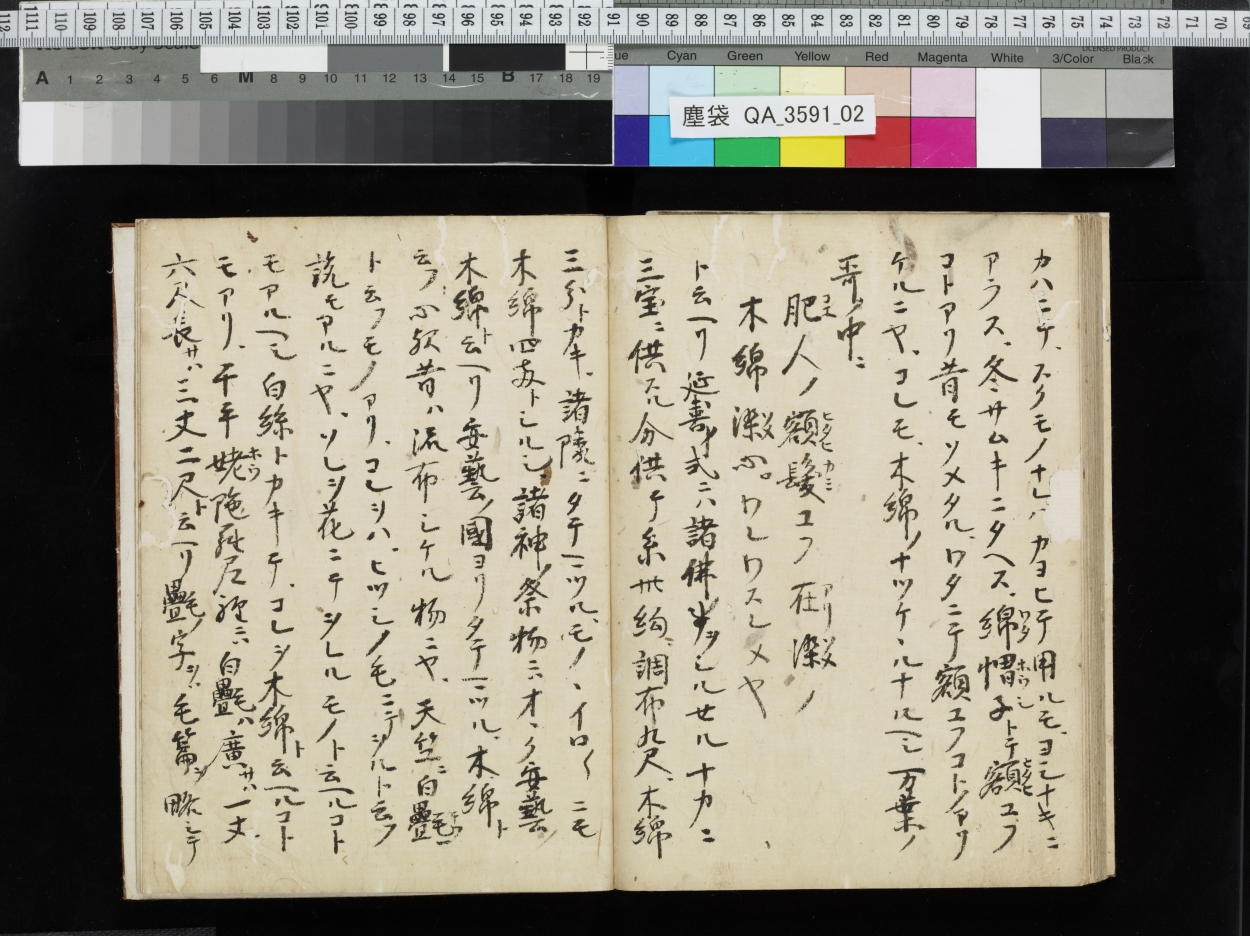 塵袋 QA_3591_02
Cyan Green Yellow Red Magenta White 3/Color Black
LICENSED PRODUCT
A 1 2 3 4 5 6 M 8 9 10 11 12 13 14 15 B 17 18 19
カハニテ、スクモノナレハカヨヒテ用ルモ、ヨシナキニ
アラス、冬サムキニタヘス、綿帽子トテ額ユフ
コトアリ昔モツメタル、ワタニテ額ユフコトノアリ
ケルニヤ、コレモ、木綿ノナツケヽルナルヘシ万葉ノ
哥ノ中ニ
肥人ノ額髪ユフ在染ノ
木綿染心ワレワスレメヤ
ト云ヘリ延喜ノ式ニハ諸佛ノ
三宝ニ供スル分供テ糸卅絇、調布九尺、木綿
三分トカキ、諸陵ニタテマツル、モノヽイロ〱ニモ
木綿四両トシルシ、諸神ノ祭物ニオホク安藝ノ
木綿ト云ヘリ安藝ノ國ヨリタテマツル、木綿ト
云フ心歟昔ハ流布シケル物ニヤ、天竺ニ白㲲
ト云フモノアリ、コレヲハ、ヒツシノ毛ニテヲルト云フ
説モアルニヤ、ソレヲ花ニテヲレルモノト云ヘルコト
モアルヘシ白絲トカキテ、コレヲ木綿ト云ヘルコト
モアリ、千手姥陁羅尼経ニハ白㲲ハ廣サハ一丈、
六尺長サハ三丈二尺ト云ヘリ㲲字ヲハ毛篇ヲ略シテ